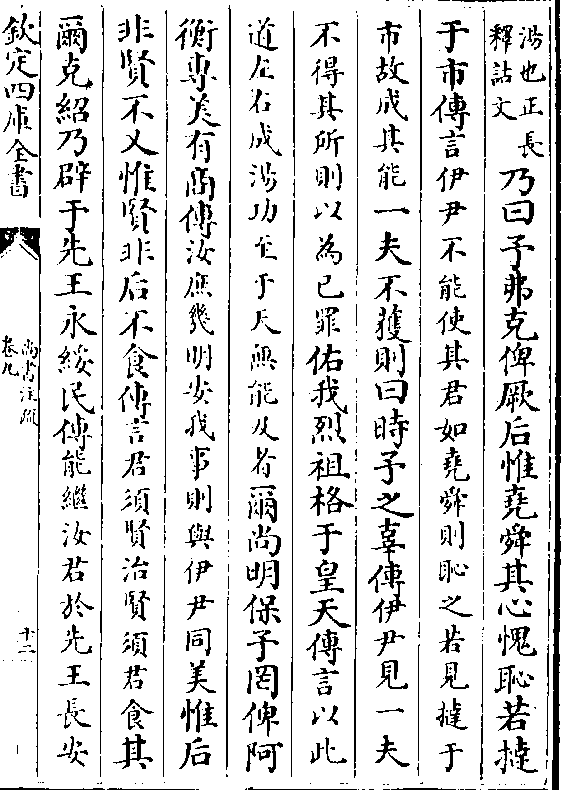 湯也正長
釋詁文
乃曰予弗克俾厥后惟堯舜其心愧恥若撻
于市傳言伊尹不能使其君如堯舜則恥之若見撻于
市故成其能一夫不獲則曰時予之辜傳伊尹見一夫
不得其所則以為已罪佑我烈祖格于皇天傳言以此
道左右成湯功至于天無能及者爾尚明保予罔俾阿
衡專美有商傳汝庶幾明安我事則與伊尹同美惟后
非賢不乂惟賢非后不食傳言君須賢治賢須君食其
爾克紹乃辟于先王永綏民傳能繼汝君於先王長安
欽定四庫全書
尚書注疏
卷九
十二